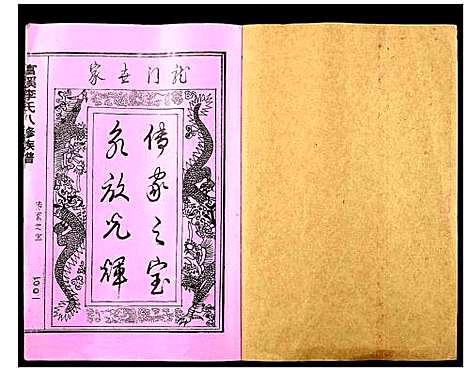 龙门世家
传家之宝
永放光輝
富溪李氏八修族谱
传家之宝
1001